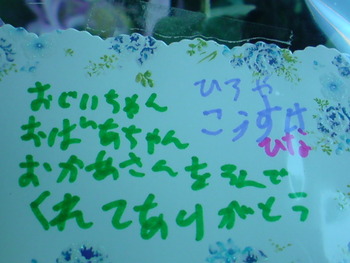 おじいちゃん
おばあちゃん
おかあさんをうんで
くれてありがとう
ひろや
こうすけ
ひな